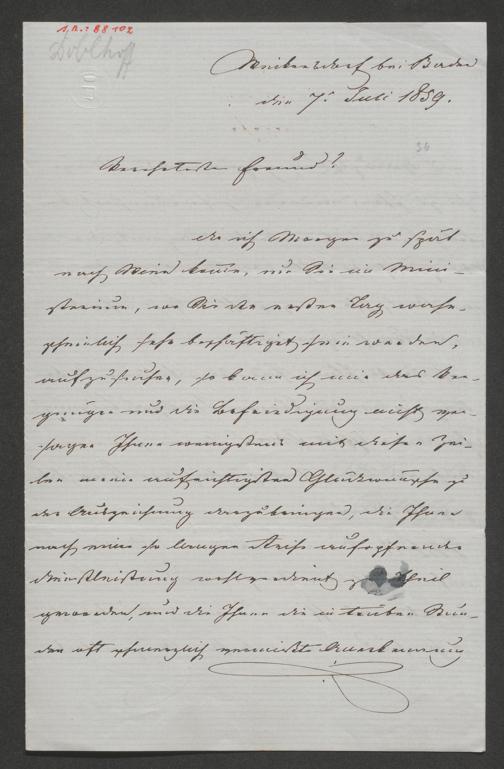 I.N.: 88102
Doblhoff
Weikersdorf bei Baden
den 7t Juli 1859.
36
Verehrtester Freund!
da ich Morgen zu spät
nach Wien komme, um Sie im Mini-
sterium, wo Sie den ersten Tag wahr-
scheinlich sehr beschäftiget sein werden,
aufzusuchen, so kann ich mir das Ver-
gnügen und die Befriedigung nicht ver-
sagen Ihnen wenigstens mit diesen Zei-
len meine aufrichtigsten Glückwünsche zu
der Auszeichnung darzubringen, die Ihnen
nach einer so langen Reihe aufopfernder
Dienstleistung wohlverdient zu Theil
geworden, und die Ihnen die in trüben Stun-
den oft schmerzlich vermißte Anerkennung